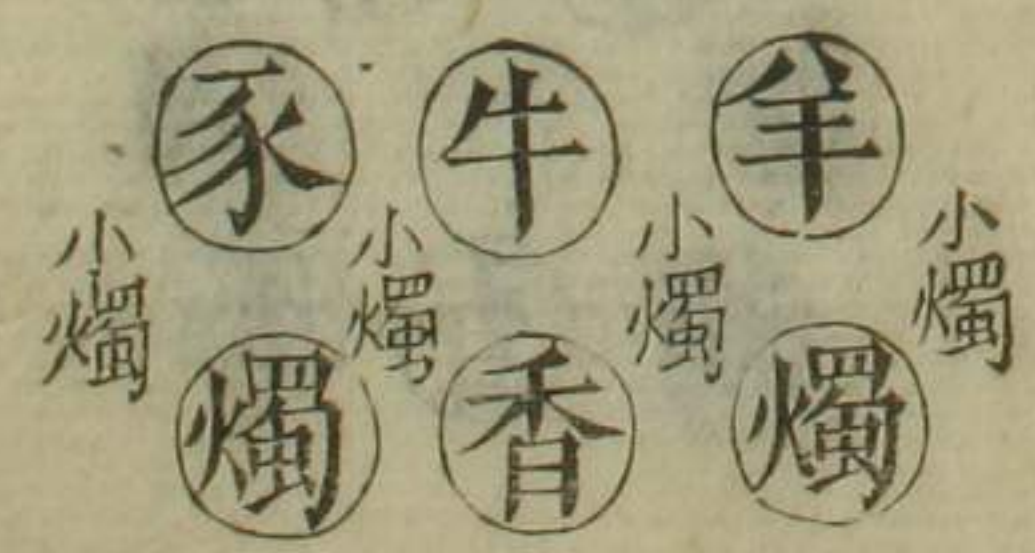 豕 牛 羊
小燭 小燭 小燭 小燭
燭 香 燭